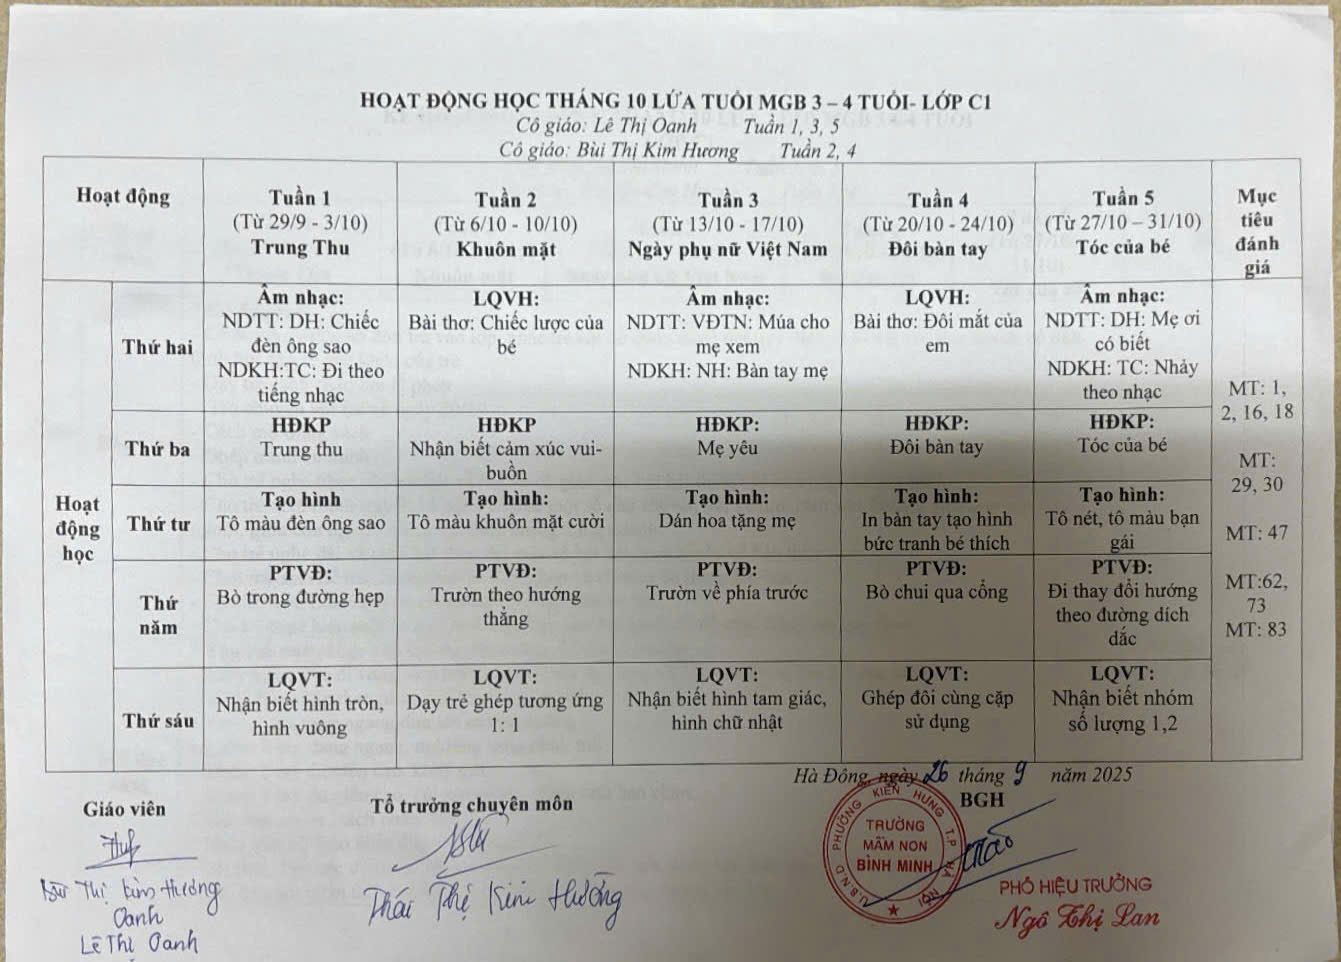 HOẠT ĐỘNG HỌC THÁNG 10 LỨA TUỔI MGB 3 – 4 TUỔI- LỚP C1
Cô giáo: Lê Thị Oanh Tuần 1, 3, 5
Cô giáo: Bùi Thị Kim Hương Tuần 2, 4
Hoạt động
Tuần 1
(Từ 29/9 - 3/10)
Trung Thu
Tuần 2
(Từ 6/10 - 10/10)
Khuôn mặt
Tuần 3
(Từ 13/10 - 17/10)
Ngày phụ nữ Việt Nam
Tuần 4
(Từ 20/10 - 24/10)
Đôi bàn tay
Tuần 5
(Từ 27/10 – 31/10)
Tóc của bé
Mục
tiêu
đánh
giá
Hoạt
động
học
Thứ hai
Âm nhạc:
NDTT: DH: Chiếc
đèn ông sao
NDKH:TC: Đi theo
tiếng nhạc
LQVH:
Bài thơ: Chiếc lược của
bé
Âm nhạc:
NDTT: VĐTN: Múa cho
mẹ xem
NDKH: NH: Bàn tay mẹ
LQVH:
Bài thơ: Đôi mắt của
em
Âm nhạc:
NDTT: DH: Mẹ ơi
có biết
NDKH: TC: Nhảy
theo nhạc
Thứ ba
HĐKP
Trung thu
HĐKP
Nhận biết cảm xúc vui-
buồn
HĐKP:
Mẹ yêu
HĐKP:
Đôi bàn tay
HĐKP:
Tóc của bé
Thứ tư
Tạo hình
Tô màu đèn ông sao
Tạo hình:
Tô màu khuôn mặt cười
Tạo hình:
Dán hoa tặng mẹ
Tạo hình:
In bàn tay tạo hình
bức tranh bé thích
Tạo hình:
Tô nét, tô màu bạn
gái
Thứ
năm
PTVĐ:
Bò trong đường hẹp
PTVĐ:
Trườn theo hướng
thẳng
PTVĐ:
Trườn về phía trước
PTVĐ:
Bò chui qua cổng
PTVĐ:
Đi thay đổi hướng
theo đường dích
dắc
Thứ sáu
LQVT:
Nhận biết hình tròn,
hình vuông
LQVT:
Dạy trẻ ghép tương ứng
1: 1
LQVT:
Nhận biết hình tam giác,
hình chữ nhật
LQVT:
Ghép đôi cùng cặp
sử dụng
LQVT:
Nhận biết nhóm
số lượng 1,2
MT: 1,
2, 16, 18
MT:
29, 30
MT: 47
MT:62,
73
MT: 83
Hà Đông, ngày 26 tháng 9 năm 2025
Giáo viên
Tổ trưởng chuyên môn
BGH
Bùi Thị Kim Hương
Oanh
Lê Thị Oanh
Thái Thị Kim Hường
U.B.N.D PHƯỜNG KIẾN HƯNG T.P HÀ NỘI
TRƯỜNG
MẦM NON
BÌNH MINH
PHÓ HIỆU TRƯỞNG
Ngô Thị Lan